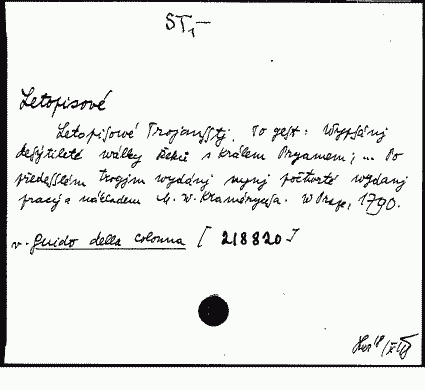 ST,–
Letopisové
Letopisowé Trojansstj. To gest: Wypsánj
desýtileté wálky Řeků s Králem Pryamem; ... Po
předesslém trogjm wydánj nynj počtwrté wydaný
pracý a nákladem M. W. Kraméryusa. W Praze, 1790.
v. Guido della Colonna [218820]